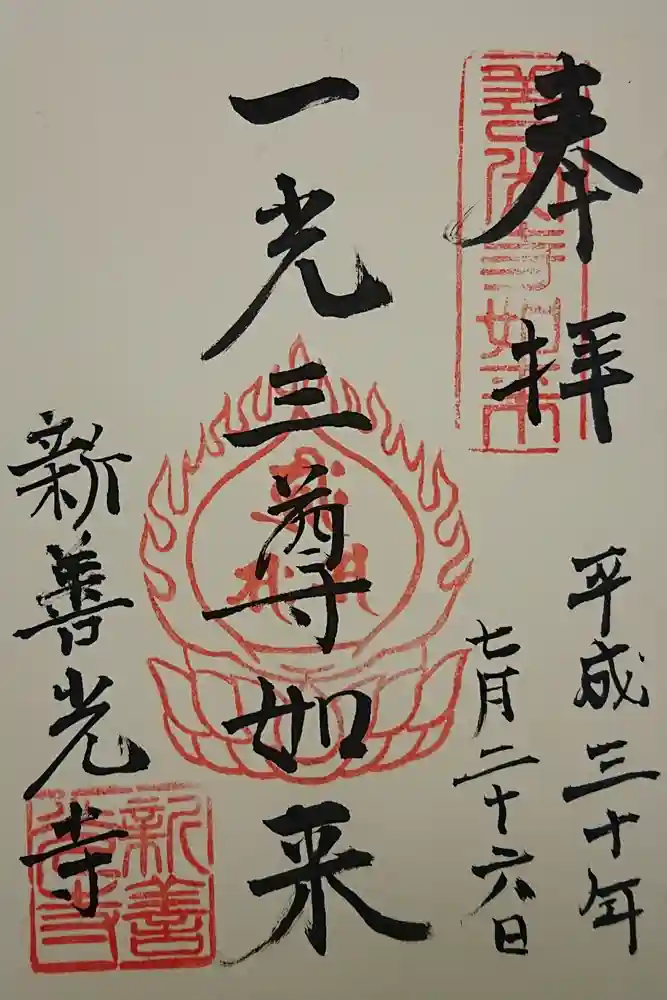 奉拝
平成三十年
七月二十六日
一光三尊如来
新善光寺
新善光寺